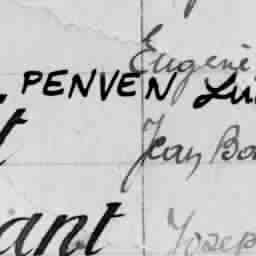 Eugène
PENVEN Lu
t
Jean Bo
ant
Joseph